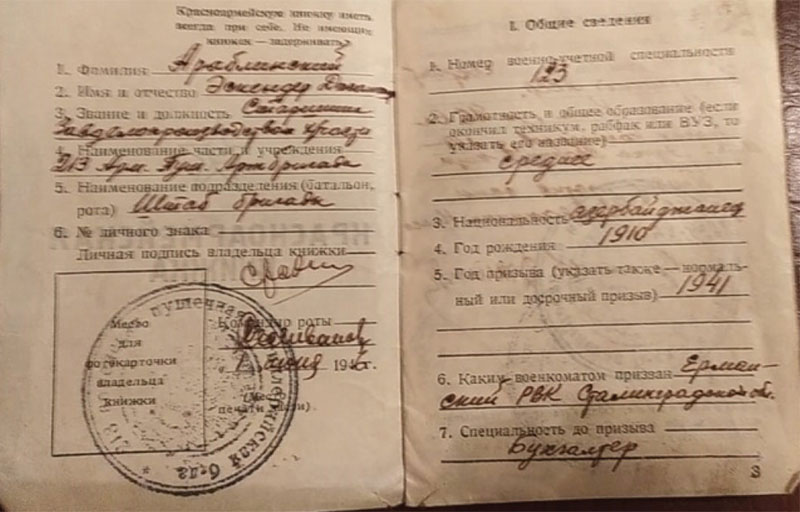 Красноармейскую книжку иметь
всегда при себе. Не имеющих
книжек — задерживать.
1. Фамилия Араблинский
2. Имя и отчество Эскендер
3. Звание и должность Старшина
Завделопроизводством
4. Наименование части и учреждения
213 Арм. Пуш. Артбригада
5. Наименование подразделения (батальон,
рота) Штаб бригады
6. № личного знака
Личная подпись владельца книжки
Место
для
фотокарточки
владельца
книжки
Командир роты
194 г.
печати части)
I. Общие сведения
1. Номер военно-учетной специальности
123
2. Грамотность и общее образование (если
окончил техникум, рабфак или ВУЗ, то
указать его название)
среднее
3. Национальность азербайджанец
4. Год рождения 1910
5. Год призыва (указать также — нормаль-
ный или досрочный призыв) 1941
6. Каким военкоматом призван Ерман-
ский РВК Сталинградской об.
7. Специальность до призыва
Бухгалтер
3